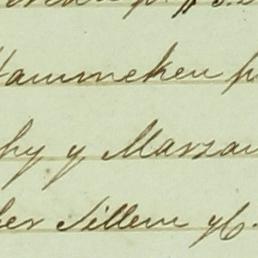 Hammeken p
hy y Marzan
her Sillem yC.